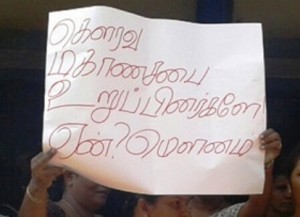 கௌரவ
மகாணசபை
உறுப்பினர்களே
ஏன்? மௌனம்